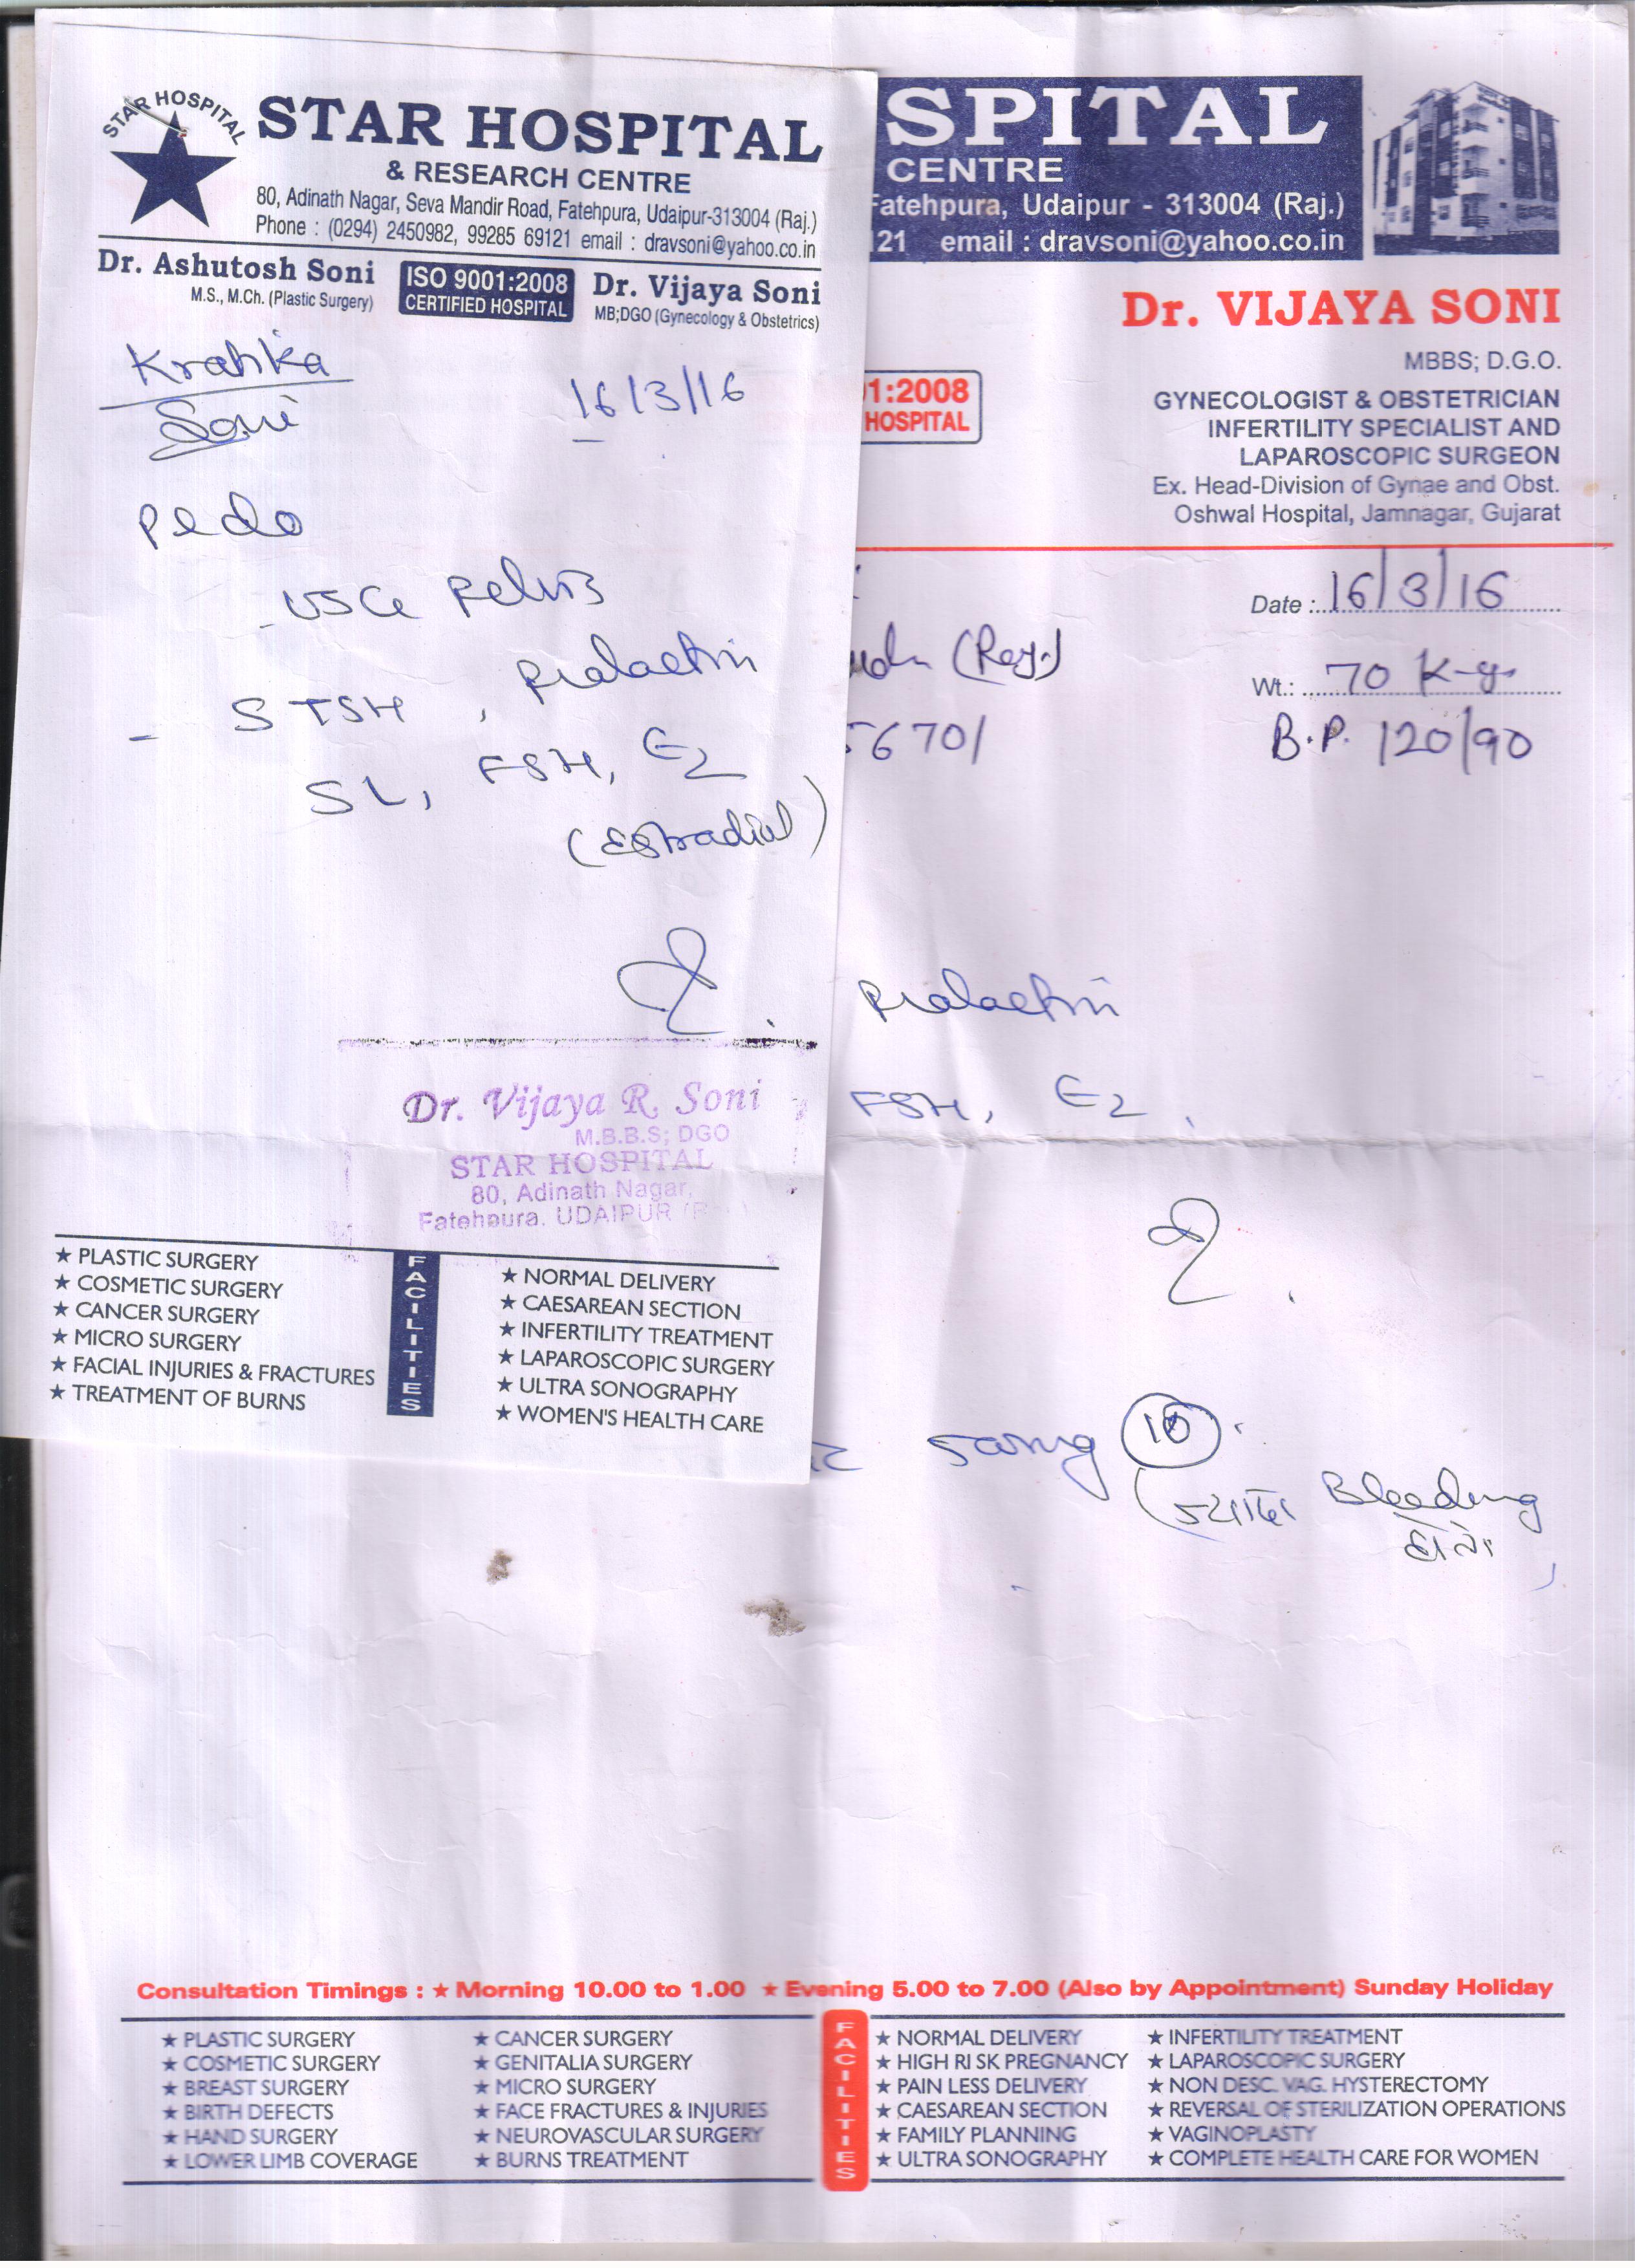 STAR HOSPITAL
STAR HOSPITAL
& RESEARCH CENTRE
80, Adinath Nagar, Seva Mandir Road, Fatehpura, Udaipur-313004 (Raj.)
Phone : (0294) 2450982, 99285 69121 email : dravsoni@yahoo.co.in
Dr. Ashutosh Soni
M.S., M.Ch. (Plastic Surgery)
ISO 9001:2008
CERTIFIED HOSPITAL
Dr. Vijaya Soni
MB;DGO (Gynecology & Obstetrics)
Kratika
Soni
16/3/16
- USG Pelvis
- S TSH, Prolactin
SL, FSH, E2
(Estradiol)
Dr. Vijaya R. Soni
M.B.B.S; DGO
STAR HOSPITAL
80, Adinath Nagar,
Fatehpura, UDAIPUR
★ PLASTIC SURGERY
★ COSMETIC SURGERY
★ CANCER SURGERY
★ MICRO SURGERY
★ FACIAL INJURIES & FRACTURES
★ TREATMENT OF BURNS
FACILITIES
★ NORMAL DELIVERY
★ CAESAREAN SECTION
★ INFERTILITY TREATMENT
★ LAPAROSCOPIC SURGERY
★ ULTRA SONOGRAPHY
★ WOMEN'S HEALTH CARE
SPITAL
CENTRE
Fatehpura, Udaipur - 313004 (Raj.)
121 email : dravsoni@yahoo.co.in
Dr. VIJAYA SONI
MBBS; D.G.O.
1:2008
HOSPITAL
GYNECOLOGIST & OBSTETRICIAN
INFERTILITY SPECIALIST AND
LAPAROSCOPIC SURGEON
Ex. Head-Division of Gynae and Obst.
Oshwal Hospital, Jamnagar, Gujarat
Date : 16/3/16
(Raj.)
Wt.: 70 K.g.
5670/
B.P. 120/90
Prolactin
FSH, E2,
10
Bleeding
Consultation Timings : ★ Morning 10.00 to 1.00 ★ Evening 5.00 to 7.00 (Also by Appointment) Sunday Holiday
★ PLASTIC SURGERY
★ COSMETIC SURGERY
★ BREAST SURGERY
★ BIRTH DEFECTS
★ HAND SURGERY
★ LOWER LIMB COVERAGE
★ CANCER SURGERY
★ GENITALIA SURGERY
★ MICRO SURGERY
★ FACE FRACTURES & INJURIES
★ NEUROVASCULAR SURGERY
★ BURNS TREATMENT
FACILITIES
★ NORMAL DELIVERY
★ HIGH RISK PREGNANCY
★ PAIN LESS DELIVERY
★ CAESAREAN SECTION
★ FAMILY PLANNING
★ ULTRA SONOGRAPHY
★ INFERTILITY TREATMENT
★ LAPAROSCOPIC SURGERY
★ NON DESC. VAG. HYSTERECTOMY
★ REVERSAL OF STERILIZATION OPERATIONS
★ VAGINOPLASTY
★ COMPLETE HEALTH CARE FOR WOMEN